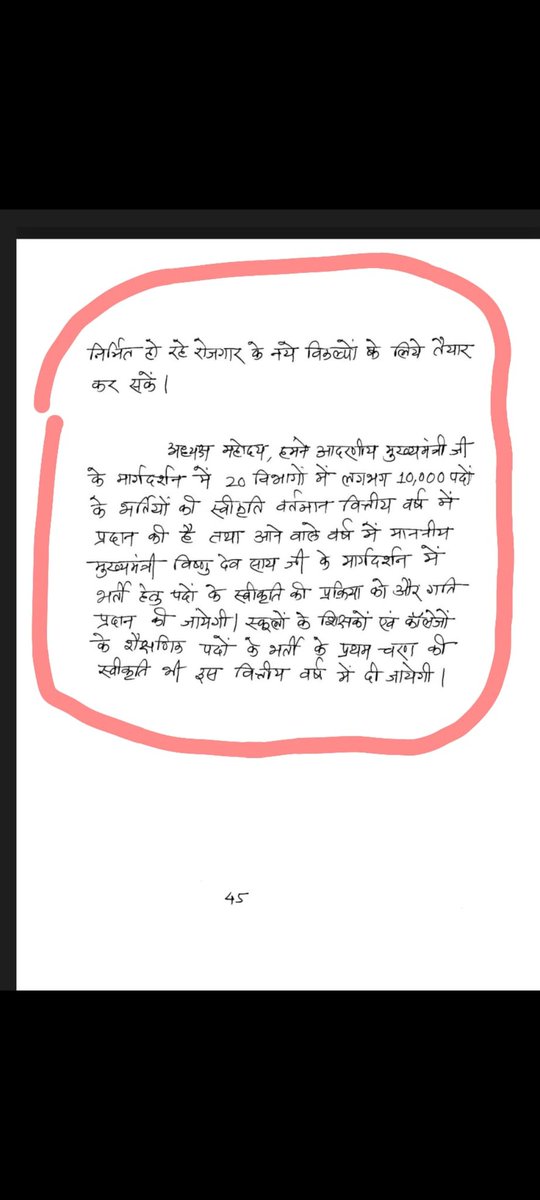 निर्मित हो रहे रोजगार के नये विकल्पों के लिये तैयार
कर सकें।
अध्यक्ष महोदय, हमने आदरणीय मुख्यमंत्री जी
के मार्गदर्शन में 20 विभागों में लगभग 10,000 पदों
के भर्तियों की स्वीकृति वर्तमान वित्तीय वर्ष में
प्रदान की है तथा आने वाले वर्ष में माननीय
मुख्यमंत्री विष्णु देव साय जी के मार्गदर्शन में
भर्ती हेतु पदों के स्वीकृति की प्रक्रिया को और गति
प्रदान की जायेगी। स्कूलों के शिक्षकों एवं कॉलेजों
के शैक्षणिक पदों के भर्ती के प्रथम चरण की
स्वीकृति भी इस वित्तीय वर्ष में दी जायेगी।
45